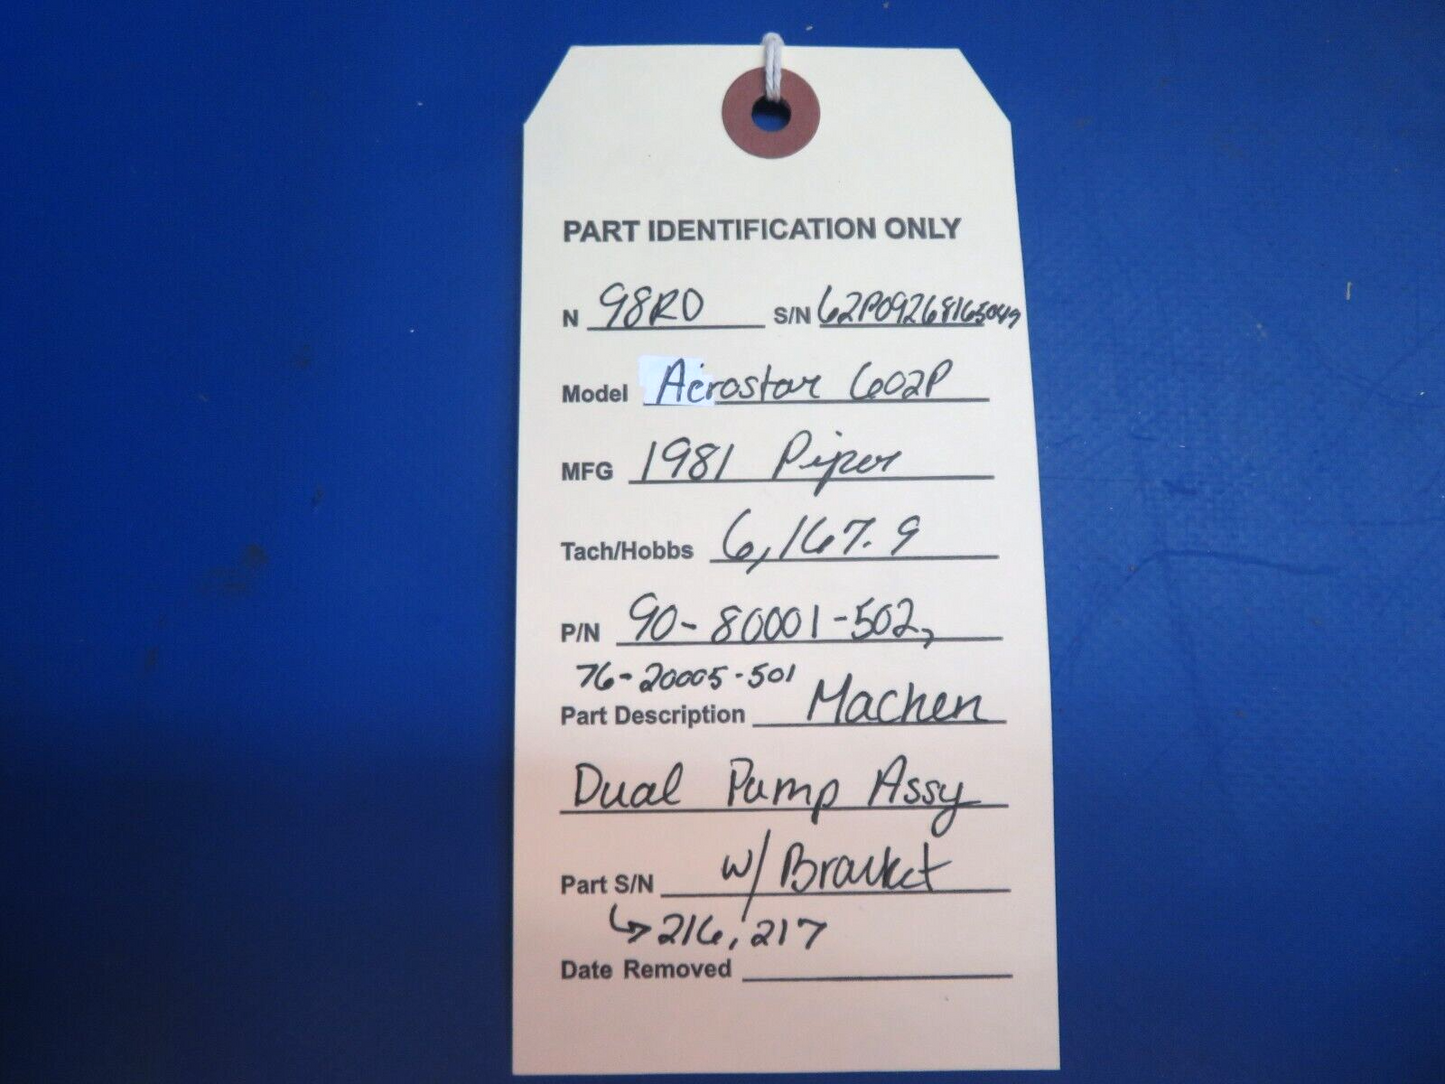 PART IDENTIFICATION ONLY
N 98RD S/N 62P09268165049
Model Aerostar 602P
MFG 1981 Piper
Tach/Hobbs 6,167.9
P/N 90-80001-502,
76-20005-501
Part Description Machen
Dual Pump Assy
Part S/N w/ Bracket
↳ 216, 217
Date Removed